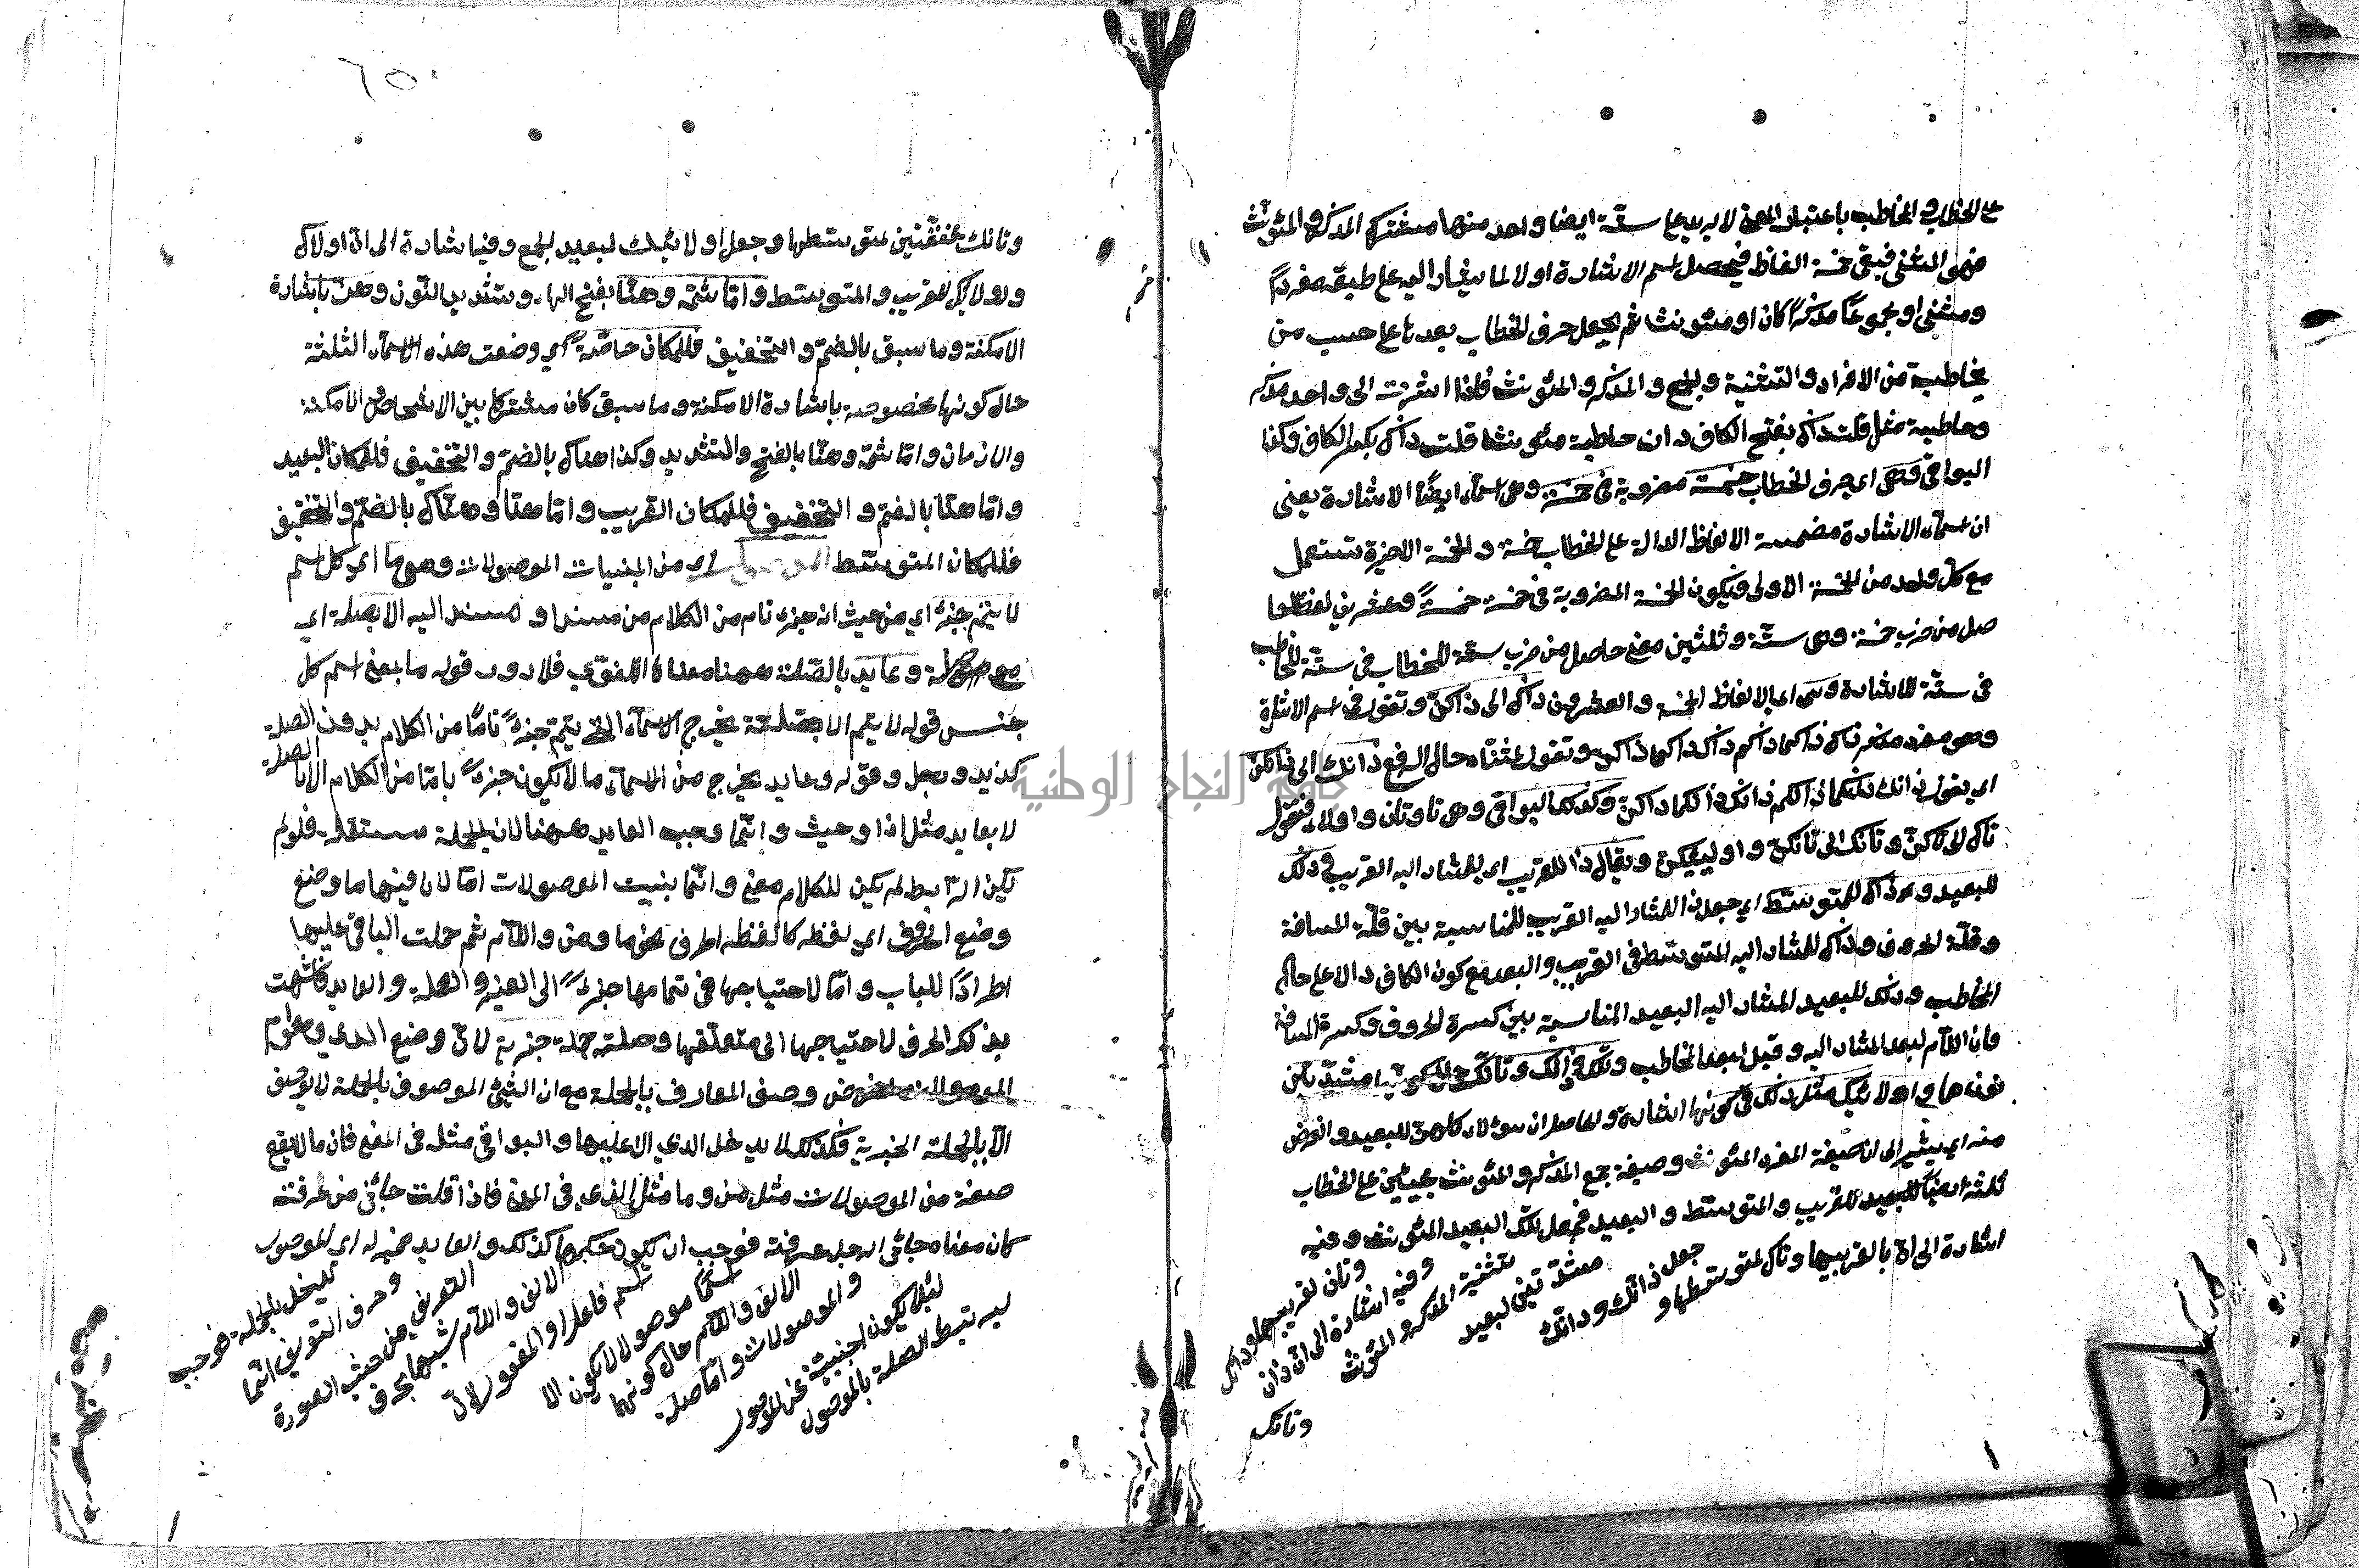 على الخطاب في المخاطب باعتبار المعنى لا يزيد على ستة ايضا واحد منها مشترك المذكر والمؤنث
وهو المثنى فبقى خمسة الفاظ فيحصل اسم الاشارة اولا لما يشار اليه على طبقه مفرداً
ومثنى او مجموعاً مذكراً كان او مؤنثا ثم يجعل حرف الخطاب بعدها على حسب من
يخاطب من الافراد والتثنية والجمع والمذكر والمؤنث فاذا اشرت الى واحد مذكر
وخاطبت مثل قلت ذاك بفتح الكاف وان خاطبت مؤنثا قلت ذاك بكسر الكاف وكذا
البواقى وهى اى حرف الخطاب خمسة مضروبة فى خمسة وهى اسماء ايضا الاشارة يعنى
ان اسماء الاشارة خمسة الالفاظ الدالة على الخطاب خمسة والخمسة الاخيرة تستعمل
مع كل واحد من الخمسة الاولى فيكون الخمسة المضروبة فى خمسة خمسةً وعشرين لفظا حا
صل من ضرب خمسة وهى ستة وثلثين معنى حاصل من ضرب ستة للخطاب فى ستة للمخاطب
فى ستة للاشارة وهى اى الالفاظ الخمسة والعشرون ذاك الى ذاكن وتقول فى اسم الاشارة
وهو مفرد مذكر ذاك ذاكما ذاكم ذاك ذاكما ذاكن وتقول لمثناه حال الرفع ذانك الى ذانكن
اى يقول ذانك ذانكما ذانكم ذانك ذانكما ذانكن وكذلك البواقى وهى تا وتان واولاء فتقول
تاك الى تاكن وتانك الى تانكن واوليكن ويقال ذا للقريب اى للمشار اليه القريب وذلك
للبعيد وذاك للمتوسط اى جعل ذا للمشار اليه القريب للمناسبة بين قلة المسافة
وقلة الحروف وذاك للمشار اليه المتوسط فى القرب والبعد مع كون الكاف دالا على حال
المخاطب وذلك للبعيد المشار اليه البعيد المناسبة بين كسرة الحروف وكسرة المسافة
فان اللام لبعد المشار اليه وقيل لبعد المخاطب وتلك وذانك وتانك مشددتين
نون هما واولائك مثل ذلك فى كونها اشارة والحاصل ان هؤلاء كلهن للبعيد والغرض
منه اى يشير الى ان صيغة المفرد المؤنث وصيغة جمع المذكر والمؤنث على الخطاب
ثلثة ايضا للقريب والمتوسط والبعيد فجعل تلك البعيد المؤنث وفيه
اشارة الى ان تا لقريبها وتاك لمتوسطها و
جعل ذانك وتانك
مشددتين لبعيد
تثنية المذكر والمؤنث
وفيه اشارة الى ان ذان
وتان لقريبها وذانك
وتانك
٦٥
وتانك مخففتين لمتوسطها وجعل اولائك لبعيد الجمع وفيه اشارة الى ان اولاك
واولاء للقريب والمتوسط واما ثمه وهنّا بفتح الهاء وتشديد النون وهن باشارة
الامكنة وما سبق بالضم والتخفيف فللمكان خاصةً اى وضعت هذه الاسماء الثلثة
حال كونها مخصوصة باشارة الامكنة وما سبق كان مشتركا بين الاشخاص والامكنة
والازمان واما ثمه وهنا بالفتح والتشديد وكذا هناك بالضم والتخفيف فللمكان البعيد
واما هنا بالضم والتخفيف فللمكان القريب واما هنا وهناك بالضم والتخفيف
فللمكان المتوسط الموصول اى من المبنيات الموصولات وهى ما اى كل اسم
لا يتم جزءً اى من حيث انه جزء تام من الكلام من مسند او مسند اليه الا بصلة اى
موصولة وعايد بالصلة ههنا معناه اللغوى فلا دور قوله ما بمعنى اسم كل
جنس قوله لا يتم الا بصلة يخرج الاسماء التى يتم جزءً تامّا من الكلام بدون الصلة
كزيد ورجل وقوله وعايد يخرج من الاسماء ما لا يكون جزءً تاما من الكلام الا بالصلة
لا بعايد مثل اذا وحيث وانما وجب العايد ههنا لان الجملة مستقلة فلو لم
يكن الرابط لم يكن للكلام معنى وانما بنيت الموصولات اما لان فيها ما وضع
وضع الحروف اى لفظه كالفظه نحو ما ومن واللام ثم حملت الباقى عليها
اطرادًا للباب واما لاحتياجها فى تمامها جزءً الى الغير والصلة والعايد فاشبهت
بذلك الحرف لاحتياجها الى متعلقها وصلته جملة خبرية لان وضع الذى وهو ام
الموصولات لغرض وصف المعارف بالجملة مع ان الشئ الموصوف بالجملة لا يوصف
الا بالجملة الخبرية فكذلك لا يدخل الذى الا عليها والبواقى مثله فى المعنى فان ما لا يقع
صفة من الموصولات مثل من وما مثل الذى فى المعنى فاذا قلت جائنى من عرفته
كان معناه جائنى الرجل عرفته فوجب ان يكون حكمها كذلك والعايد ضمير له اى الموصول
ليرتبط الصلة بالموصول
لئلا يكون اجنبية عن الموصول
والموصولات واما صلة
الالف واللام حال كونها
اسمًا موصولا لا يكون الا
اسم فاعل او المفعول لان
الالف واللام شبيها بحرف
التعريف من حيث الصورة
وحرف التعريف انما
يدخل بالجملة فوجب
جامعة النجاح الوطنية